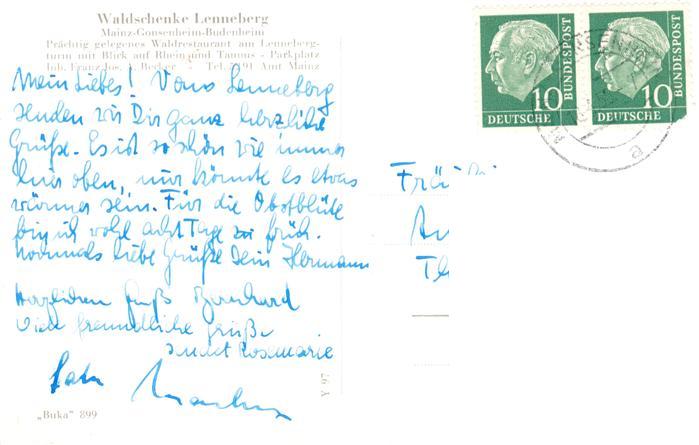 Waldschenke Lenneberg
Mainz-Gonsenheim-Budenheim
Prächtig gelegenes Waldrestaurant am Lenneberg-
turm mit Blick auf Rhein und Taunus - Parkplatz
Jh. Franz Jos. Becker - Tel. Amt Mainz
Mein Liebes! Vom Lenneberg
senden wir Dir ganz herzliche
Grüße. Es ist so schön wie immer
hier oben, nur könnte es etwas
wärmer sein. Für die Obstblüte
bin ich wohl acht Tage zu früh.
Nochmals liebe Grüße Dein Hermann
Herzlichen Gruß Bernhard
Viele freundliche Grüße
Rosemarie
Y 97
„Buka" 899
10
DEUTSCHE
BUNDESPOST
10
DEUTSCHE
BUNDESPOST